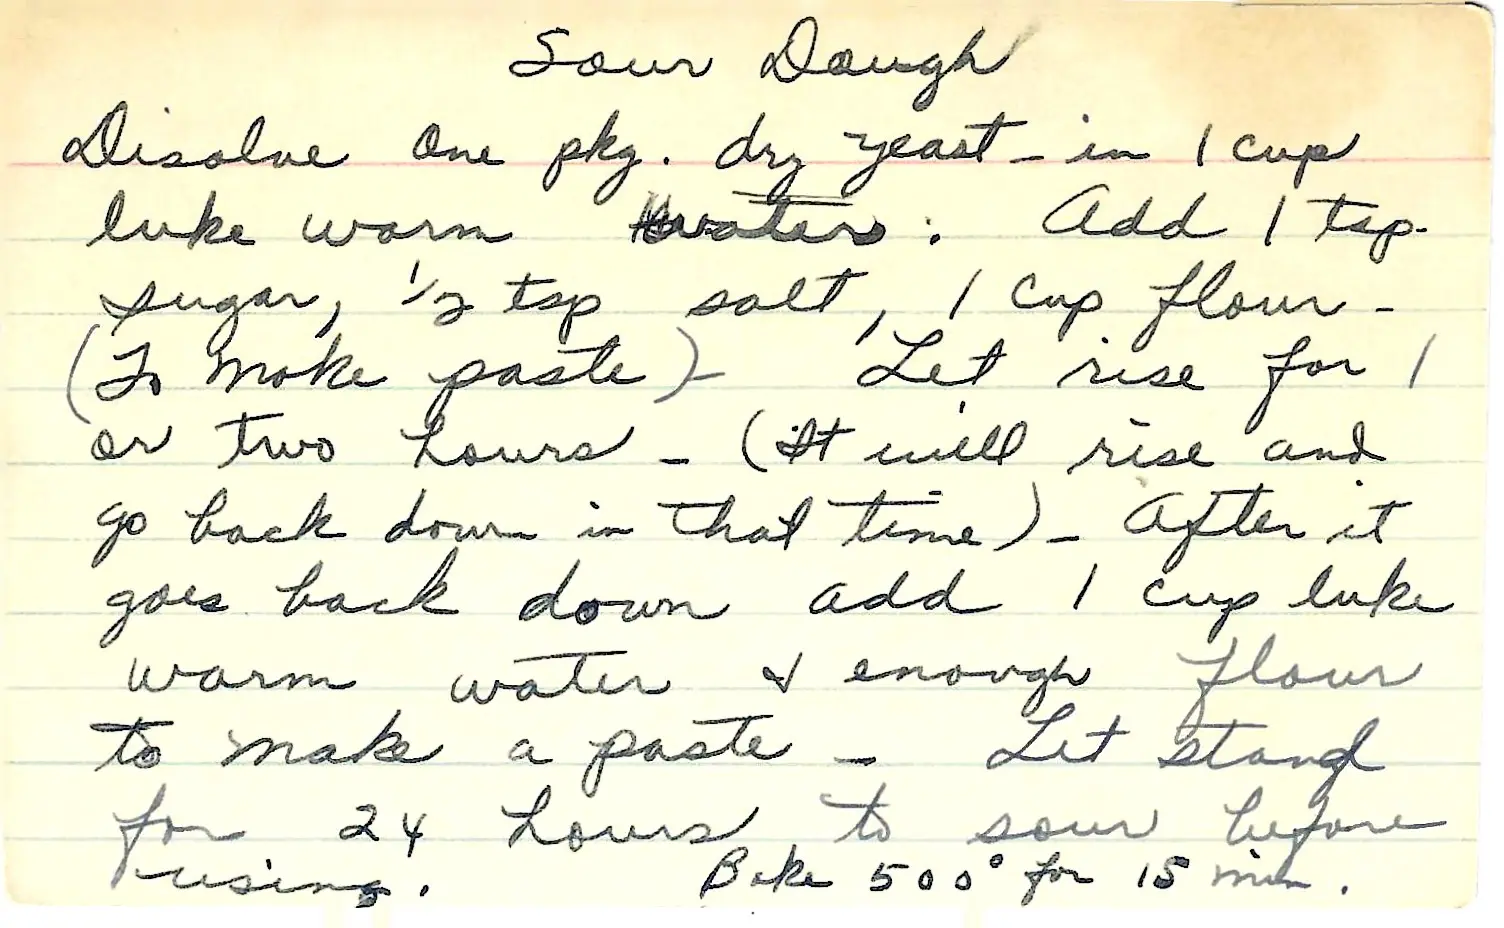 Sour Dough
Disolve one pkg. dry yeast - in 1 cup
luke warm water. Add 1 tsp.
sugar, 1/2 tsp salt, 1 cup flour -
(To make paste) - Let rise for 1
or two hours - (it will rise and
go back down in that time) - After it
goes back down add 1 cup luke
warm water & enough flour
to make a paste - Let stand
for 24 hours to sour before
using. Bake 500° for 15 min.